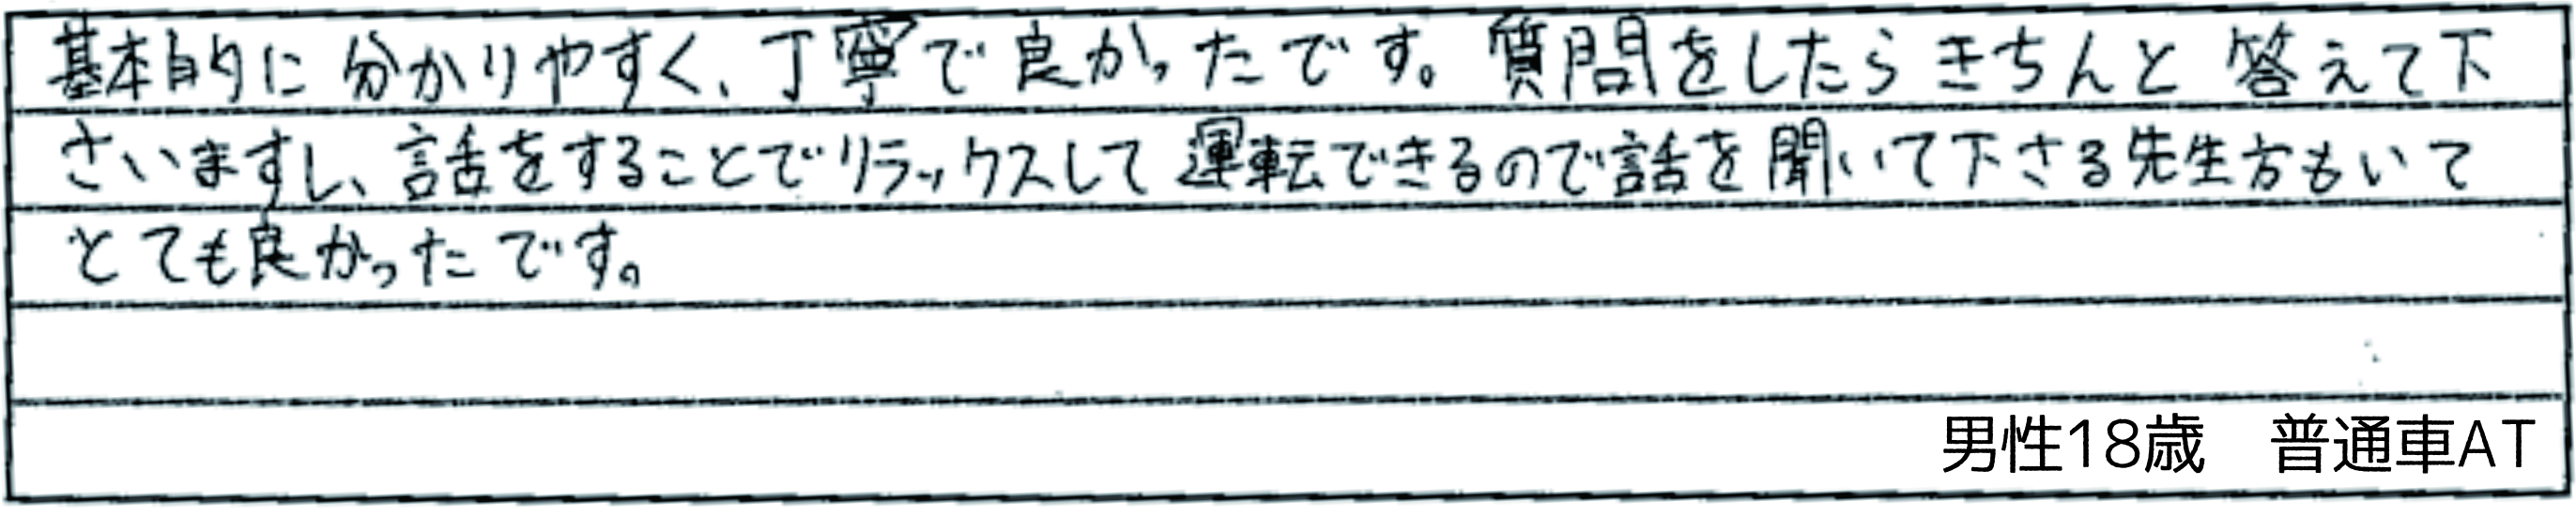 基本的に分かりやすく、丁寧で良かったです。質問をしたらきちんと答えて下
さいますし、話をすることでリラックスして運転できるので話を聞いて下さる先生方もいて
とても良かったです。
男性18歳　普通車AT